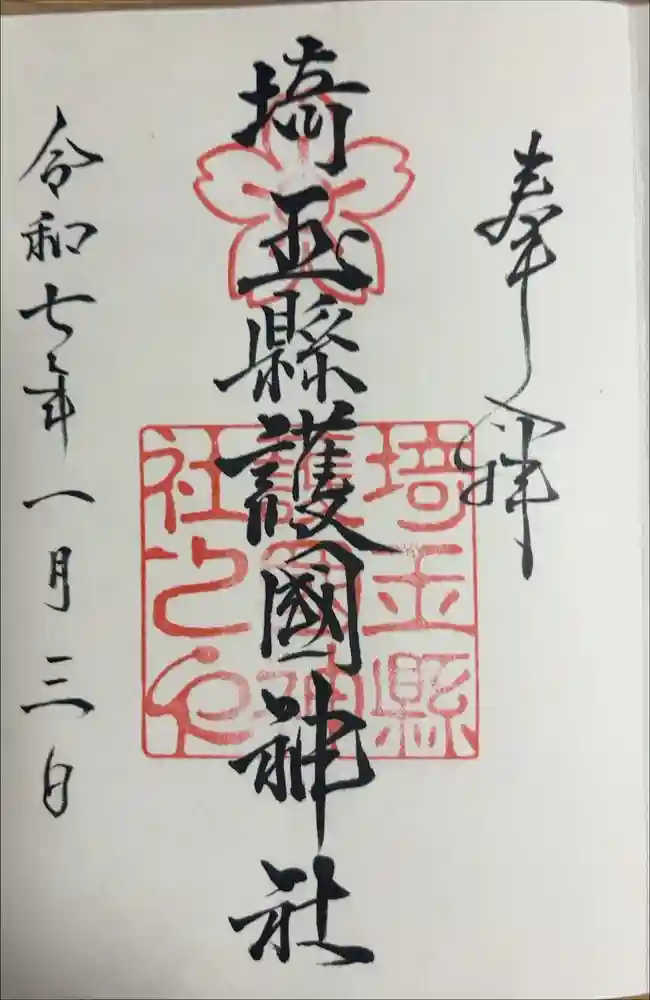 奉拝
埼玉縣護國神社
埼玉縣
護國神
社之印
令和七年一月三日